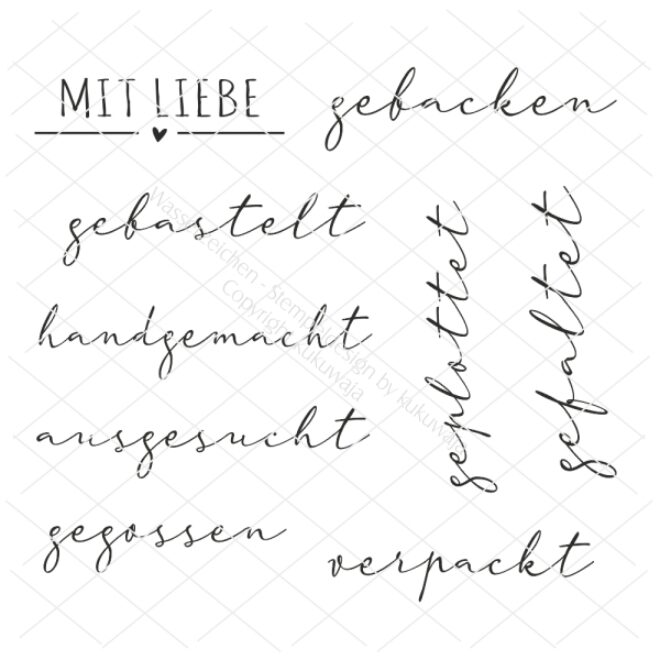 MIT LIEBE
gebacken
gebastelt
handgemacht
ausgesucht
gegossen
geplottet
gefaltet
verpackt
Wasserzeichen - Stempeldesign by kukuwaja
Copyright kukuwaja